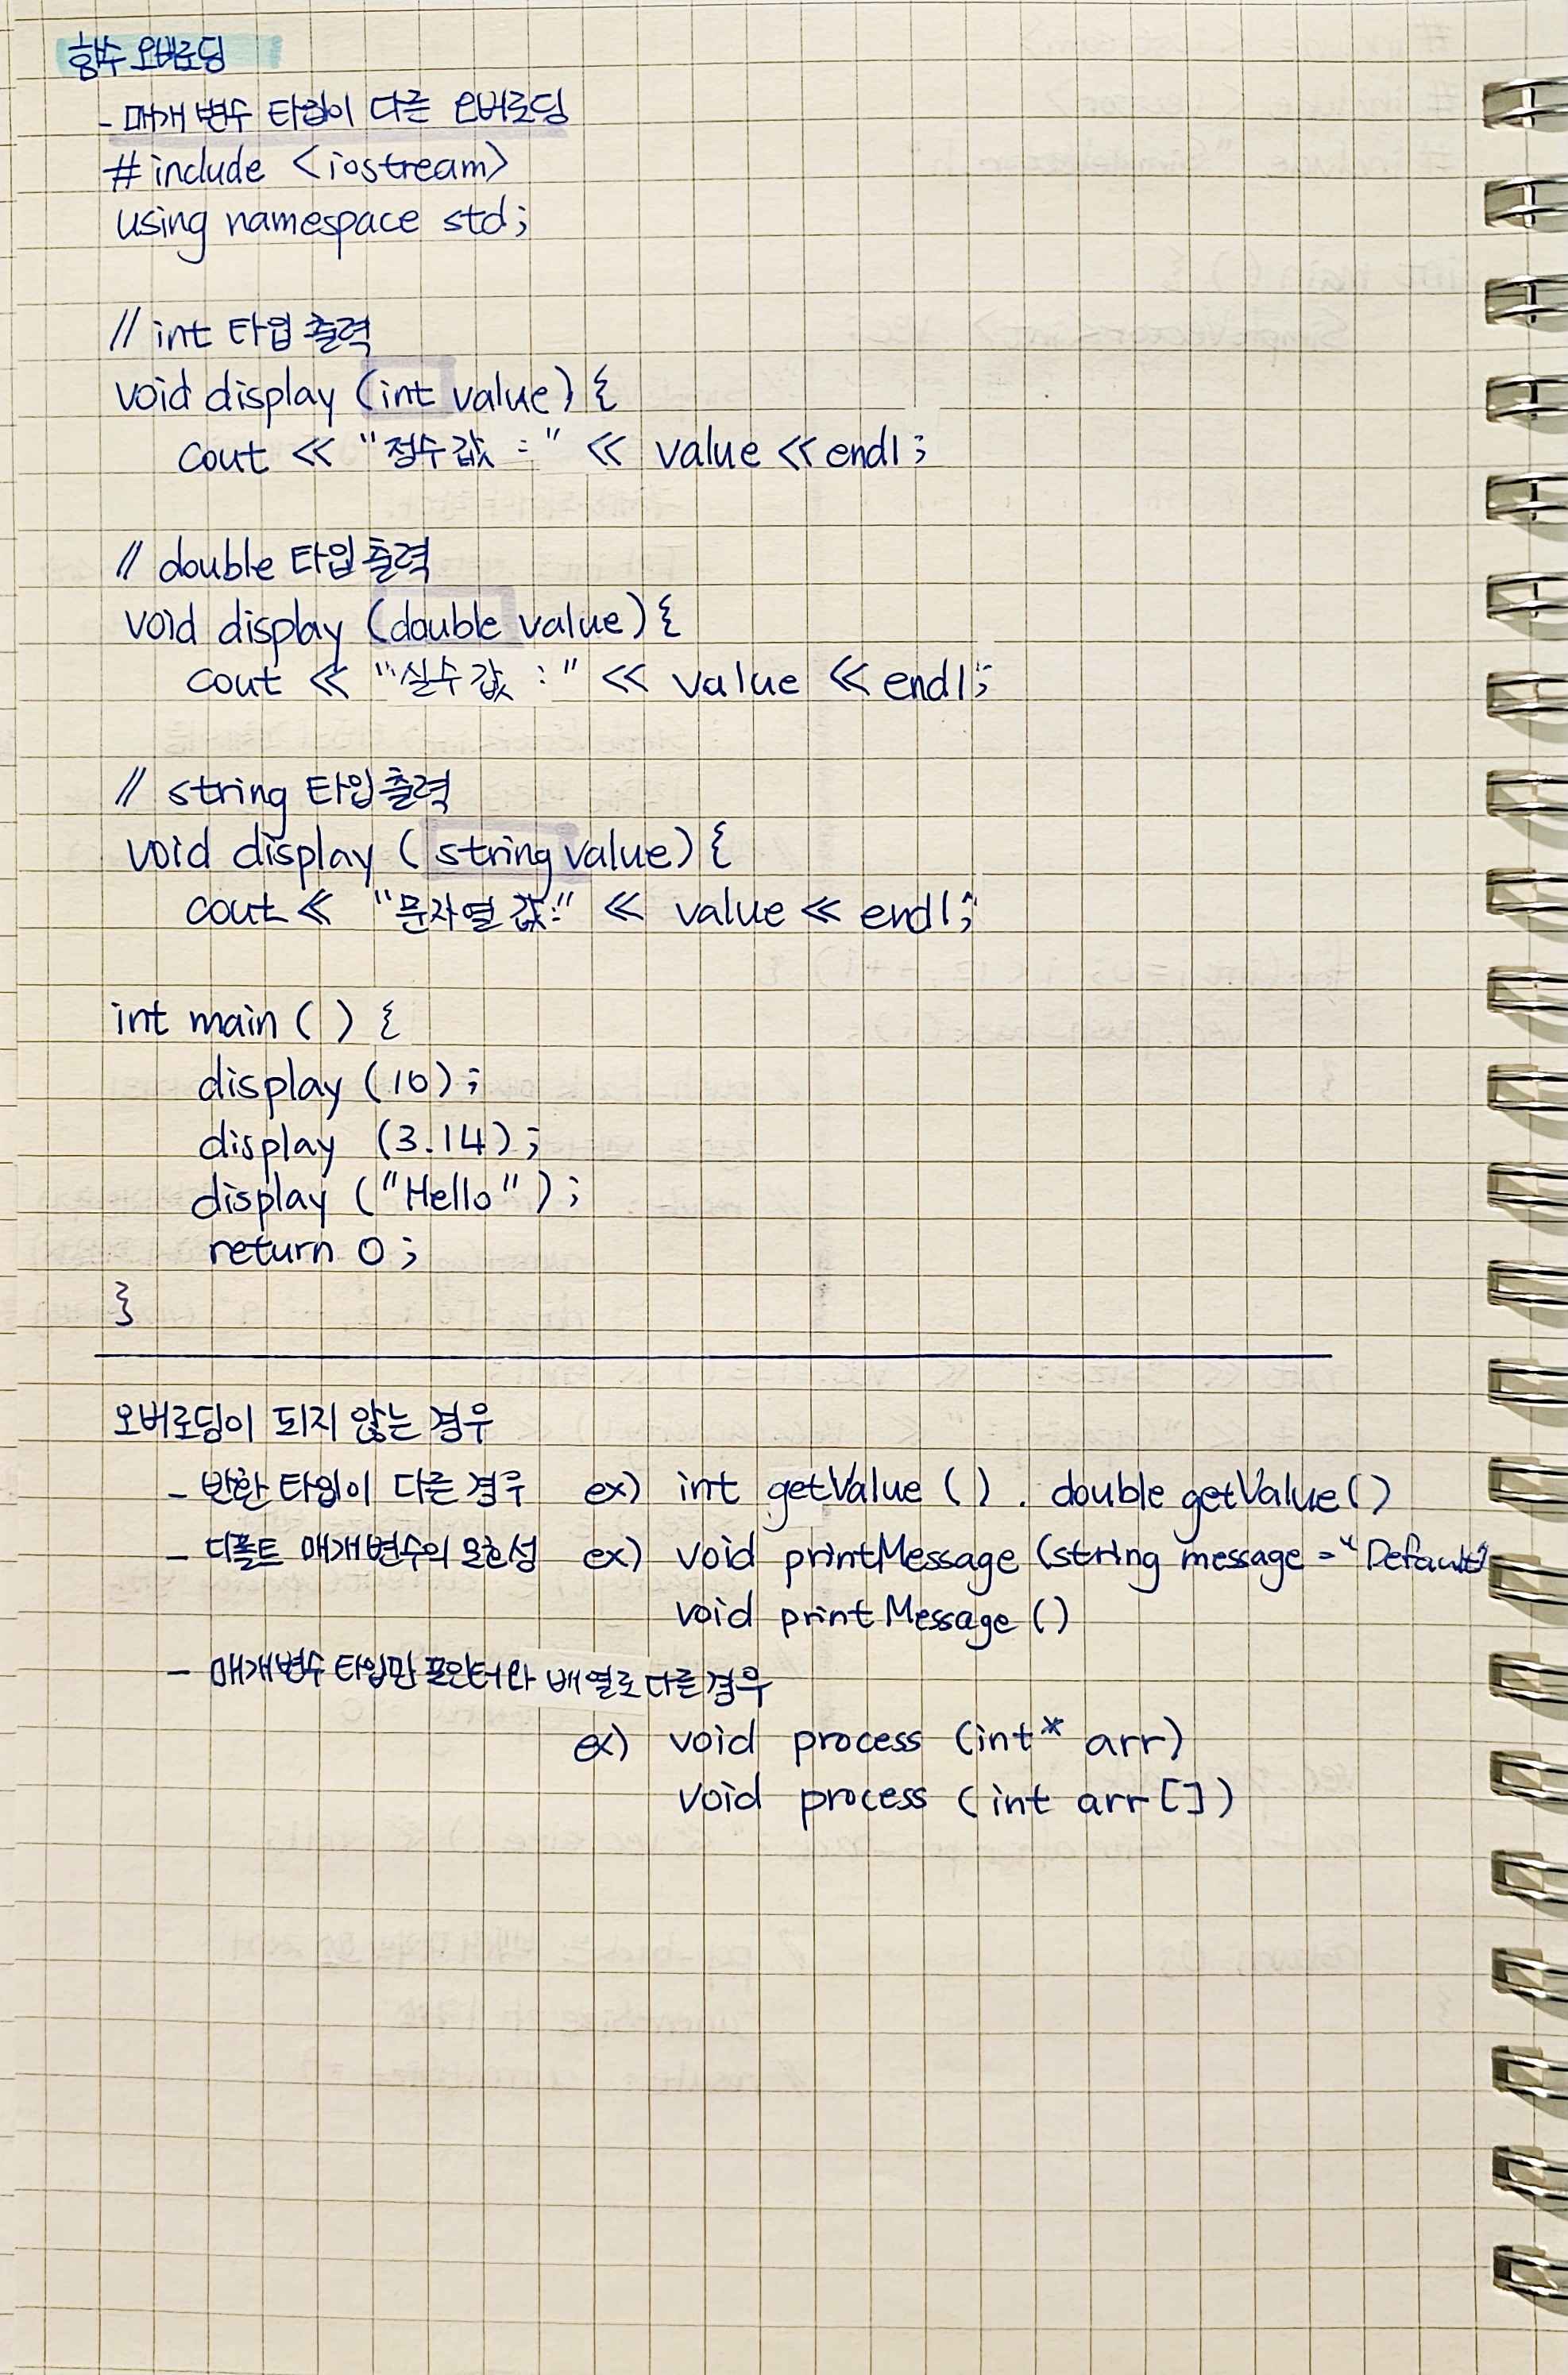 함수 오버로딩
- 매개 변수 타입이 다른 오버로딩
# include <iostream>
using namespace std;
// int 타입 출력
void display (int value) {
cout << "정수 값 :" << value << endl;
// double 타입 출력
void display (double value) {
cout << "실수 값 :" << value << endl;
// string 타입 출력
void display ( string value) {
cout << "문자열 값:" << value << endl;
int main ( ) {
display (10);
display (3.14);
display ("Hello");
return 0;
}
오버로딩이 되지 않는 경우
- 반환 타입이 다른 경우 ex) int getValue ( ). double getValue ( )
- 디폴트 매개변수의 모호성 ex) void printMessage (string message = "Default"
void printMessage ( )
- 매개변수 타입만 포인터와 배열로 다른 경우
ex) void process (int* arr)
void process (int arr [])